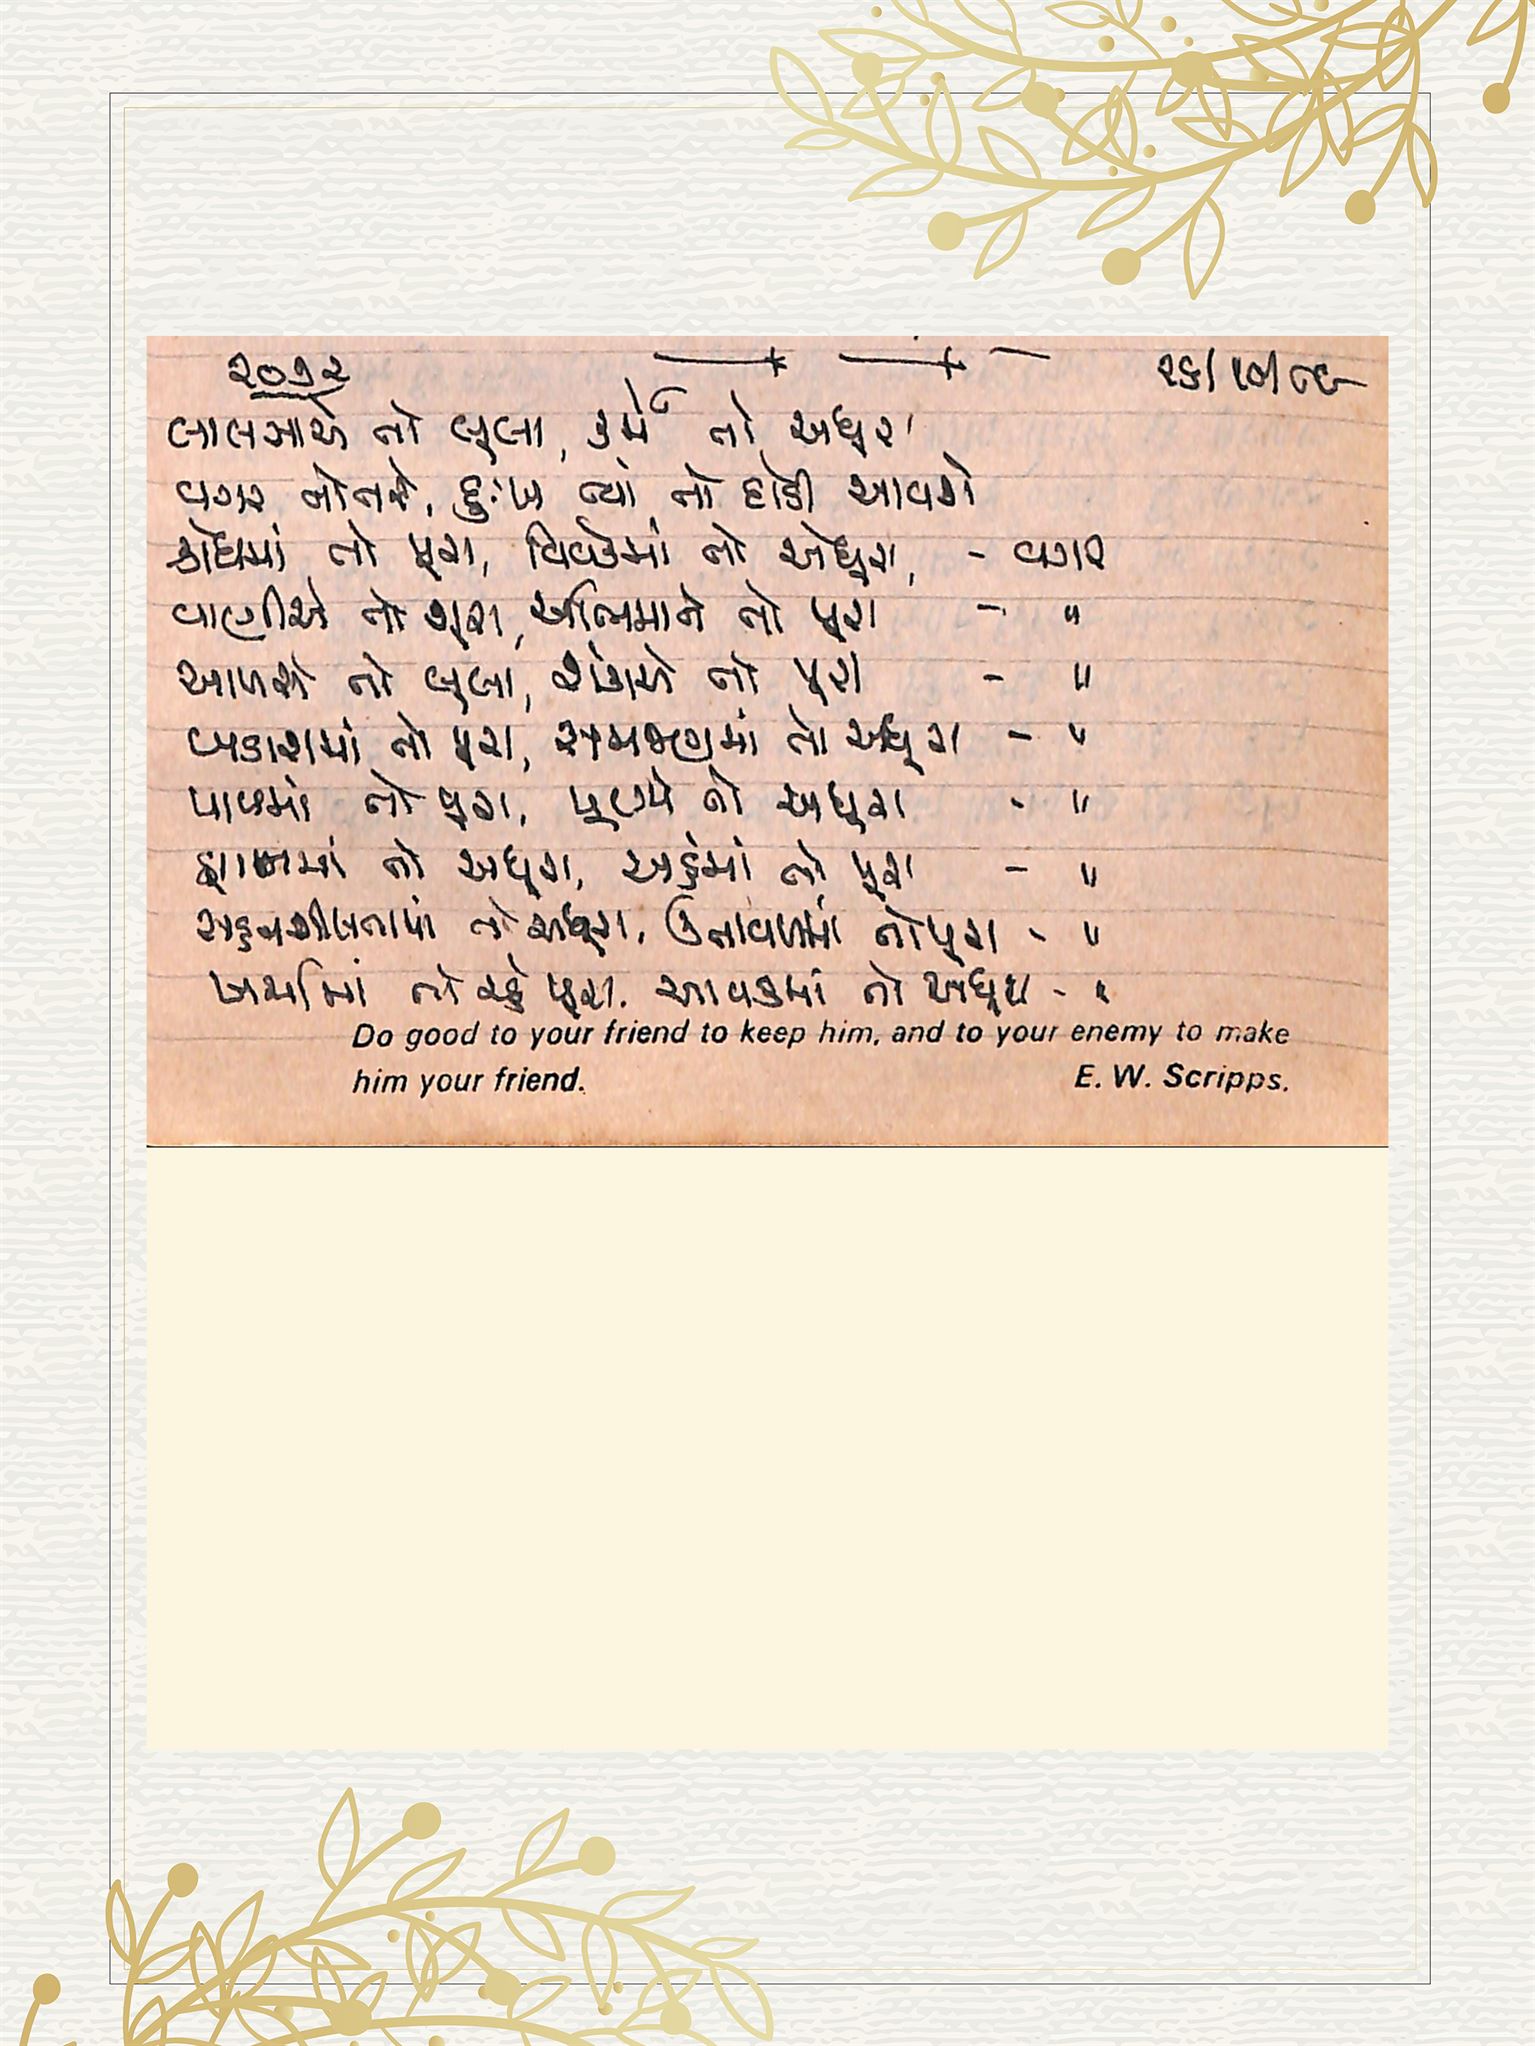 ૨૦૧૨
૨૬/૧૦/૮૯
લાલસાએ તો લૂલા, કર્મે તો અધૂરા
વગર નોતરે, દુઃખ ત્યાં તો દોડી આવશે
ક્રોધમાં તો પૂરા, વિવેકમાં તો અધૂરા, - વગર
વાણીએ તો શૂરા, અભિમાને તો પૂરા - "
આળસે તો લૂલા, શંકાએ તો પૂરા - "
બકવાશમાં તો પૂરા, સમજણમાં તો અધૂરા - "
પાપમાં તો પૂરા, પૂણ્યે તો અધૂરા - "
જ્ઞાનમાં તો અધૂરા, અહંમાં તો પૂરા - "
સહનશીલતામાં તો અધૂરા, ઉતાવળમાં તો પૂરા - "
ખર્ચામાં તો રહે પૂરા, આવકમાં તો અધૂરા - "
Do good to your friend to keep him, and to your enemy to make
him your friend. E. W. Scripps.